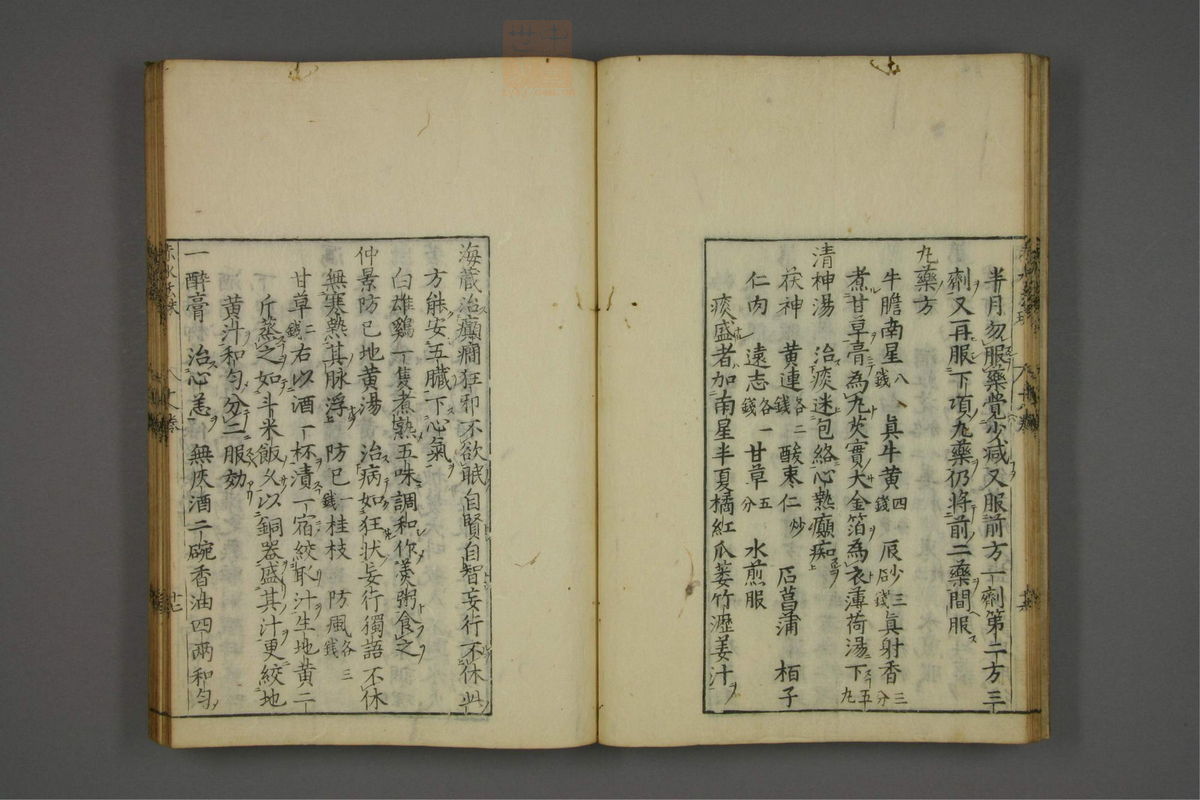 半月勿服藥覺少減又服前方一劑第二方三
劑又再服下項丸藥仍將前二藥間服
丸藥方
牛膽南星八錢 真牛黃四錢 辰砂三錢 真射香三分
煮甘草膏為丸芡實大金箔為衣薄荷湯下五丸
清神湯 治痰迷包絡心熱癲痴
茯神 黃連各二錢 酸棗仁炒 石菖蒲 栢子
仁肉 遠志各一錢 甘草五分 水煎服
痰盛者加南星半夏橘紅瓜蔞竹瀝姜汁
海蔵治癲癇狂邪不欲眠自賢自智妄行不休此
方能安五臓下心氣
白雄鷄一隻煮熟五味調和作羮粥食之
仲景防已地黃湯 治病如狂状妄行獨語不休
無寒熱其脉浮 防已一錢 桂枝 防風各三錢
甘草二錢右以酒一杯漬一宿絞取汁生地黃二
斤蒸之如斗米飯久以銅器盛其汁更絞地
黃汁和勻分二服効
一醉膏 治心恙 無灰酒二碗香油四兩和勻